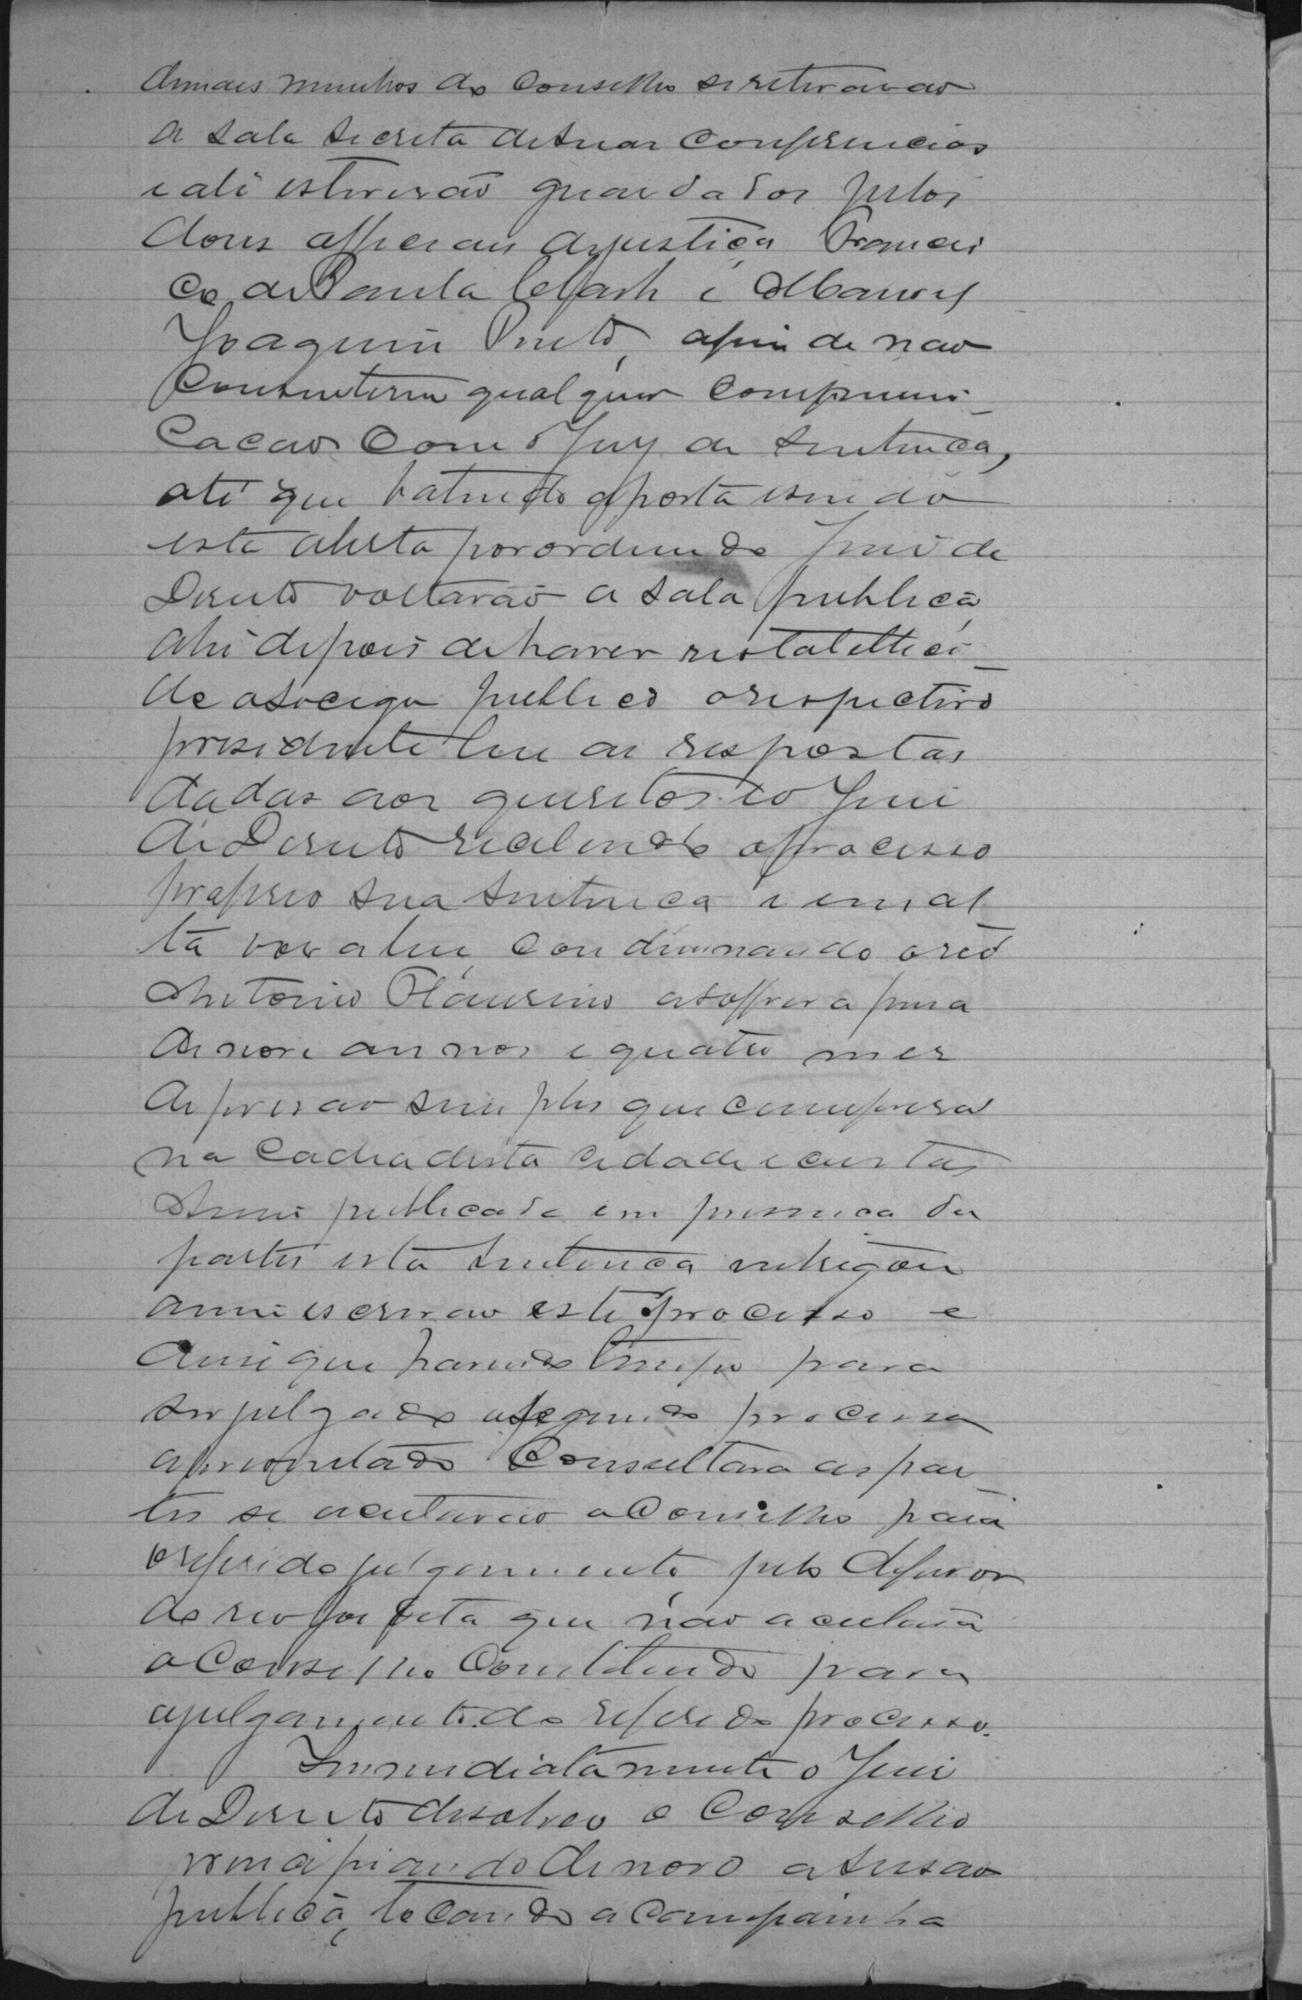 demais membros do Conselho se retirarão
a sala secreta de suas conferencias
e ali estiverão guardados pelos
dous officiais de justiça Francis
co de Paula e Manoel
Joaquim Pinto, afim de não
consenterem qualquer communi-
cacao com o Jury de sentença,
até que batendo a porta e sendo
esta aberta por ordem do Juiz de
Direito voltarão a sala publica
ahi depois de haver restabelleci-
do o socego publico o respectivo
presidente leu as respostas
dadas aos quesitos e o Juiz
de Direito recebendo o processo
proprio sua sentença e em al
ta voz a leu condemnando o reo
Antonio a soffrer a pena
de nove annos e quatro mezes
de prisão simples que cumprirá
na Cadea desta cidade e custas
Assim publicada em presença das
partes esta sentença
a mim escrivão este processo e
para
ser julgado o segundo processo
apresentado Consultara as par
tes se aceitavão o Conselho para
o referido julgamento pelo defensor
do reo foi dita que não aceitava
o Conselho Constituido para
o julgamento do referido processo.
Immediatamente o Juiz
de Direito dissolveo o Conselho
principiando de novo a sessão
publica, tocando a campainha